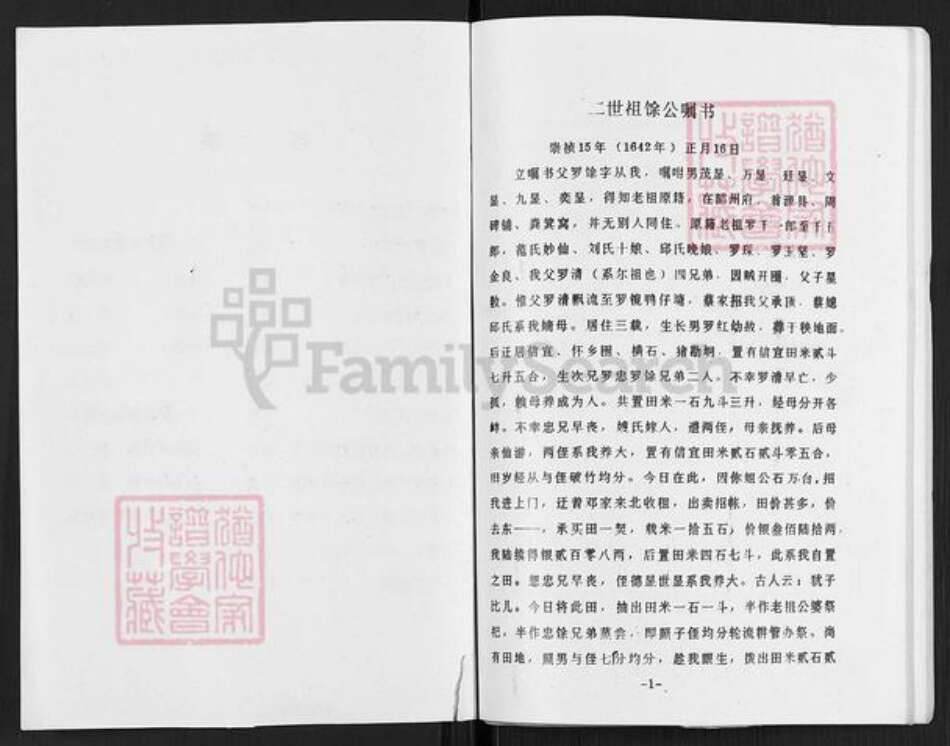 二世祖馀公嘱书
崇祯15年（1642年）正月16日
立嘱书父罗馀字从我，嘱咐男茂显、万显、廷显、文
显、九显、奕显，得知老祖原籍，在韶州府、翁源县、周
碑镇、粪箕窝，并无别人同住。原籍老祖罗千一郎至千十
郎，范氏妙仙、刘氏十娘、邱氏晚娘、罗琛、罗玉坚、罗
金良、我父罗清（系尔祖也）四兄弟，因贼开圈，父子星
散。惟父罗清飘流至罗镜鸭仔塘，蔡家招我父承顶，蔡媳
邱氏系我嫡母。居住三载，生长男罗红幼故，葬于秧地面。
后迁居信宜、怀乡圈、横石、猪勘垌，置有信宜田米贰斗
七升五合，生次兄罗忠罗馀兄弟二人。不幸罗清早亡，少
孤，赖母养成为人。共置田米一石九斗三升，经母分开各
爨。不幸忠兄早丧，嫂氏嫁人，遗两侄，母亲抚养。后母
亲仙游，两侄系我养大，置有信宜田米贰石贰斗零五合，
旧岁经从与侄破竹均分。今日在此，因你姐公石万台，招
我进上门，迁曾邓家来北收租，出卖招帐，田价甚多，价
去东一一，承买田一契，载米一拾五石，价银叁佰陆拾两，
我陆续得银贰百零八两，后置田米四石七斗，此系我自置
之田。想忠兄早丧，侄德显世显系我养大。古人云：犹子
比儿。今日将此田，抽出田米一石一斗，半作老祖公婆祭
祀，半作忠馀兄弟蒸尝，即照子侄均分轮流耕管办祭。尚
有田地，照男与侄七份均分，趁我眼生，拨出田米贰石贰
-1-
猶他家譜學會收藏
猶他家譜學會收藏
FamilySearch